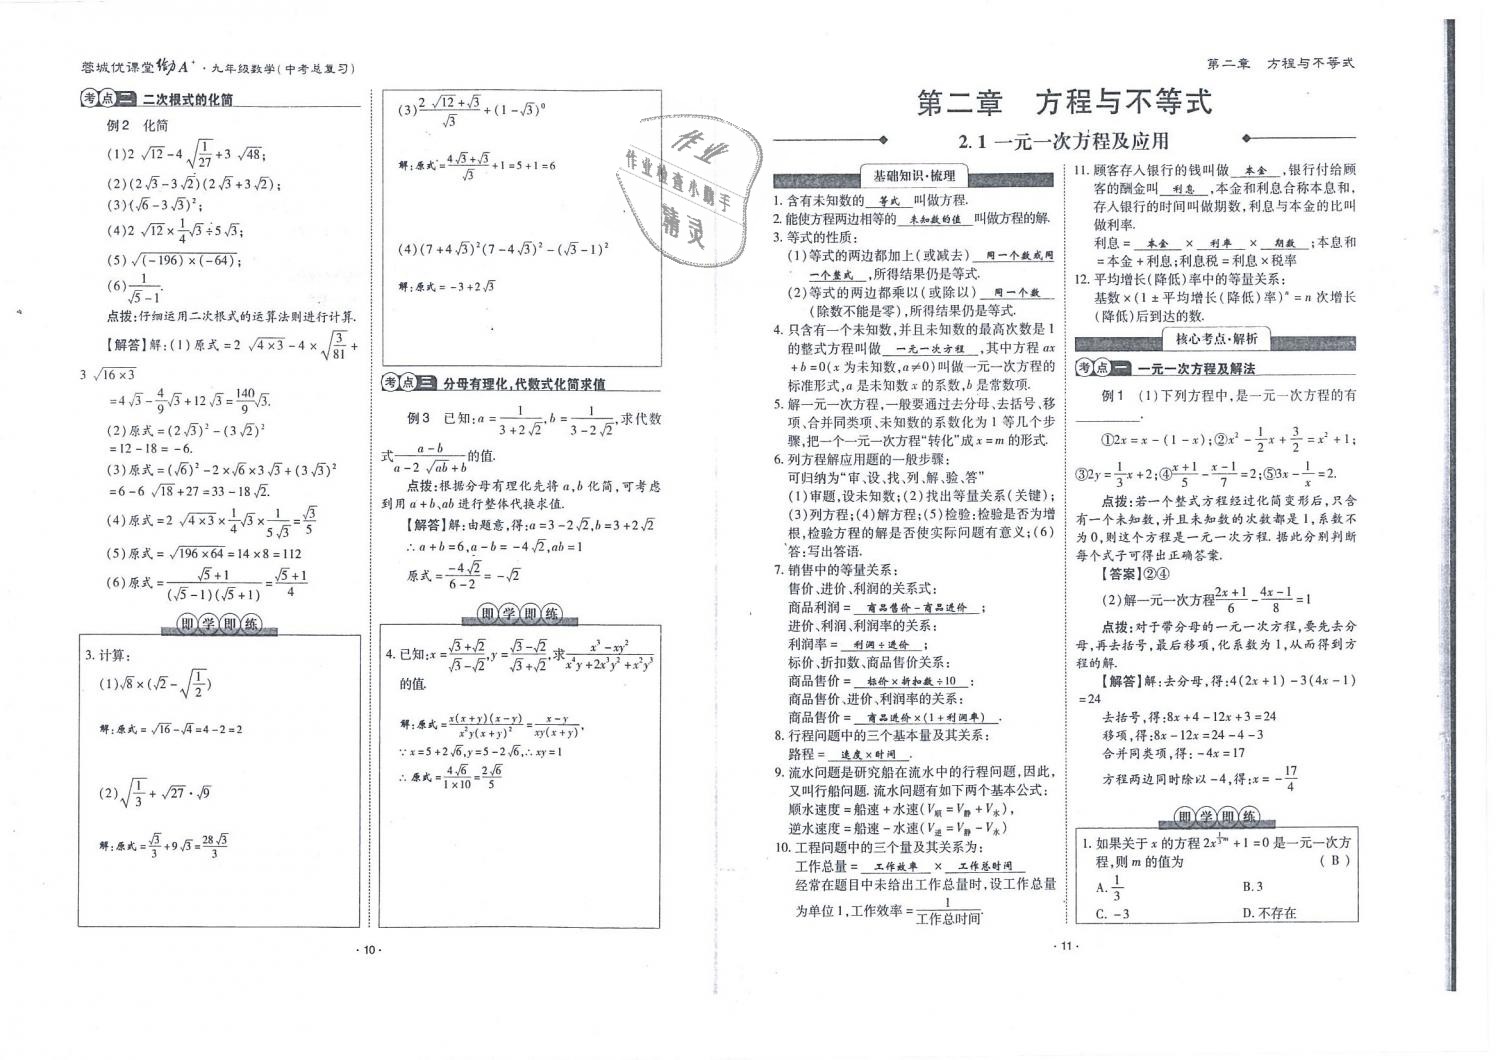 蓉城优课堂 给力A⁺·九年级数学(中考总复习)
考点二 二次根式的化简
例2 化简
(1)2√12-4√(1/27)+3√48;
(2)(2√3-3√2)(2√3+3√2);
(3)(√6-3√3)²;
(4)2√12×(1/4)√3÷5√3;
(5)√((-196)×(-64));
(6)1/(√5-1).
点拨:仔细运用二次根式的运算法则进行计算.
【解答】解:(1)原式=2√(4×3)-4×√(3/81)+
3√(16×3)
=4√3-(4/9)√3+12√3=(140/9)√3.
(2)原式=(2√3)²-(3√2)²
=12-18=-6.
(3)原式=(√6)²-2×√6×3√3+(3√3)²
=6-6√18+27=33-18√2.
(4)原式=2√(4×3)×(1/4)√3×1/(5√3)=√3/5
(5)原式=√(196×64)=14×8=112
(6)原式=(√5+1)/((√5-1)(√5+1))=(√5+1)/4
即学即练
3.计算:
(1)√8×(√2-√(1/2))
解:原式=√16-√4=4-2=2
(2)√(1/3)+√27·√9
解:原式=√3/3+9√3=28√3/3
(3)(2√12+√3)/√3+(1-√3)⁰
解:原式=(4√3+√3)/√3+1=5+1=6
(4)(7+4√3)²(7-4√3)²-(√3-1)²
解:原式=-3+2√3
考点三 分母有理化,代数式化简求值
例3 已知:a=1/(3+2√2),b=1/(3-2√2),求代数
式(a-b)/(a-2√ab+b)的值.
点拨:根据分母有理化先将a,b化简,可考虑
到用a+b、ab进行整体代换求值.
【解答】解:由题意,得:a=3-2√2,b=3+2√2
∴a+b=6,a-b=-4√2,ab=1
原式=(-4√2)/(6-2)=-√2
即学即练
4.已知:x=(√3+√2)/(√3-√2),y=(√3-√2)/(√3+√2),求(x³-xy²)/(x⁴y+2x³y²+x²y³)
的值.
解:原式=x(x+y)(x-y)/(x²y(x+y)²)=(x-y)/(xy(x+y)),
∵x=5+2√6,y=5-2√6,∴xy=1
∴原式=4√6/(1×10)=2√6/5
·10·
作业
作业检查小助手
精灵
第二章 方程与不等式
第二章 方程与不等式
2.1 一元一次方程及应用
基础知识·梳理
1.含有未知数的 等式 叫做方程.
2.能使方程两边相等的 未知数的值 叫做方程的解.
3.等式的性质:
(1)等式的两边都加上(或减去) 同一个数或同
一个整式 ,所得结果仍是等式.
(2)等式的两边都乘以(或除以) 同一个数
(除数不能是零),所得结果仍是等式.
4.只含有一个未知数,并且未知数的最高次数是1
的整式方程叫做 一元一次方程 ,其中方程ax
+b=0(x为未知数,a≠0)叫做一元一次方程的
标准形式,a是未知数x的系数,b是常数项.
5.解一元一次方程,一般要通过去分母、去括号、移
项、合并同类项、未知数的系数化为1等几个步
骤,把一个一元一次方程“转化”成x=m的形式.
6.列方程解应用题的一般步骤:
可归纳为“审、设、找、列、解、验、答”
(1)审题,设未知数;(2)找出等量关系(关键);
(3)列方程;(4)解方程;(5)检验:检验是否为增
根,检验方程的解是否使实际问题有意义;(6)
答:写出答语.
7.销售中的等量关系:
售价、进价、利润的关系式:
商品利润= 商品售价-商品进价 ;
进价、利润、利润率的关系:
利润率= 利润÷进价 ;
标价、折扣数、商品售价关系:
商品售价= 标价×折扣数÷10 ;
商品售价、进价、利润率的关系:
商品售价= 商品进价×(1+利润率) .
8.行程问题中的三个基本量及其关系:
路程= 速度×时间 .
9.流水问题是研究船在流水中的行程问题,因此,
又叫行船问题.流水问题有如下两个基本公式:
顺水速度=船速+水速(V顺=V静+V水),
逆水速度=船速-水速(V逆=V静-V水)
10.工程问题中的三个量及其关系为:
工作总量= 工作效率 × 工作总时间
经常在题目中未给出工作总量时,设工作总量
为单位1,工作效率=1/工作总时间.
11.顾客存人银行的钱叫做 本金 ,银行付给顾
客的酬金叫 利息 ,本金和利息合称本息和,
存人银行的时间叫做期数,利息与本金的比叫
做利率.
利息= 本金 × 利率 × 期数 ;本息和
=本金+利息;利息税=利息×税率
12.平均增长(降低)率中的等量关系:
基数×(1±平均增长(降低)率)ⁿ=n次增长
(降低)后到达的数.
核心考点·解析
考点一 一元一次方程及解法
例1 (1)下列方程中,是一元一次方程的有
.
①2x=x-(1-x);②x²-(1/2)x+3/2=x²+1;
③2y=(1/3)x+2;④(x+1)/5-(x-1)/7=2;⑤3x-1/x=2.
点拨:若一个整式方程经过化简变形后,只含
有一个未知数,并且未知数的次数都是1,系数不
为0,则这个方程是一元一次方程.据此分别判断
每个式子可得出正确答案.
【答案】②④
(2)解一元一次方程(2x+1)/6-(4x-1)/8=1
点拨:对于带分母的一元一次方程,要先去分
母,再去括号,最后移项,化系数为1,从而得到方
程的解.
【解答】解:去分母,得:4(2x+1)-3(4x-1)
=24
去括号,得:8x+4-12x+3=24
移项,得:8x-12x=24-4-3
合并同类项,得:-4x=17
方程两边同时除以-4,得:x=-17/4
即学即练
1.如果关于x的方程2x^((1/3)m)+1=0是一元一次方
程,则m的值为 ( B )
A.1/3 B.3
C.-3 D.不存在
·11·